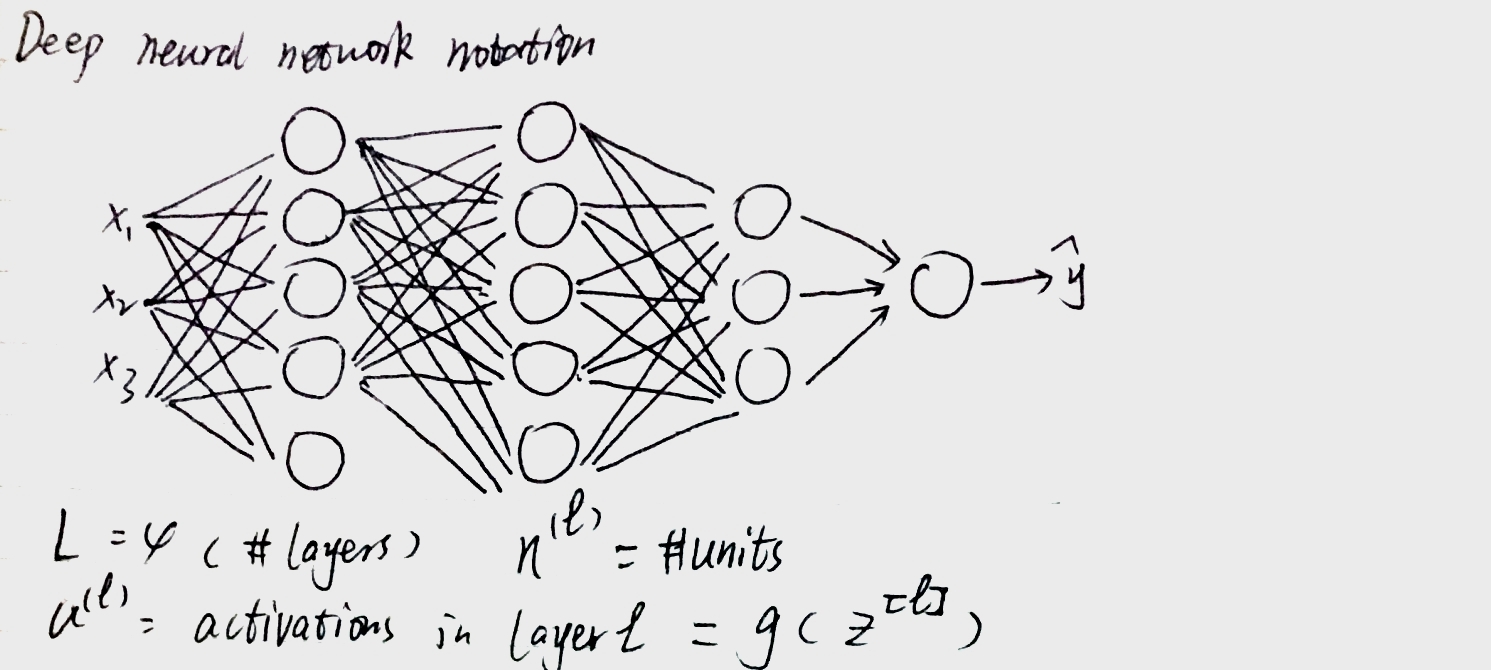 Deep neural network notation
x₁
x₂
x₃
ŷ
L = 4 (# layers) n⁽ˡ⁾ = #units
a⁽ˡ⁾ = activations in layer l = g(z^[l])